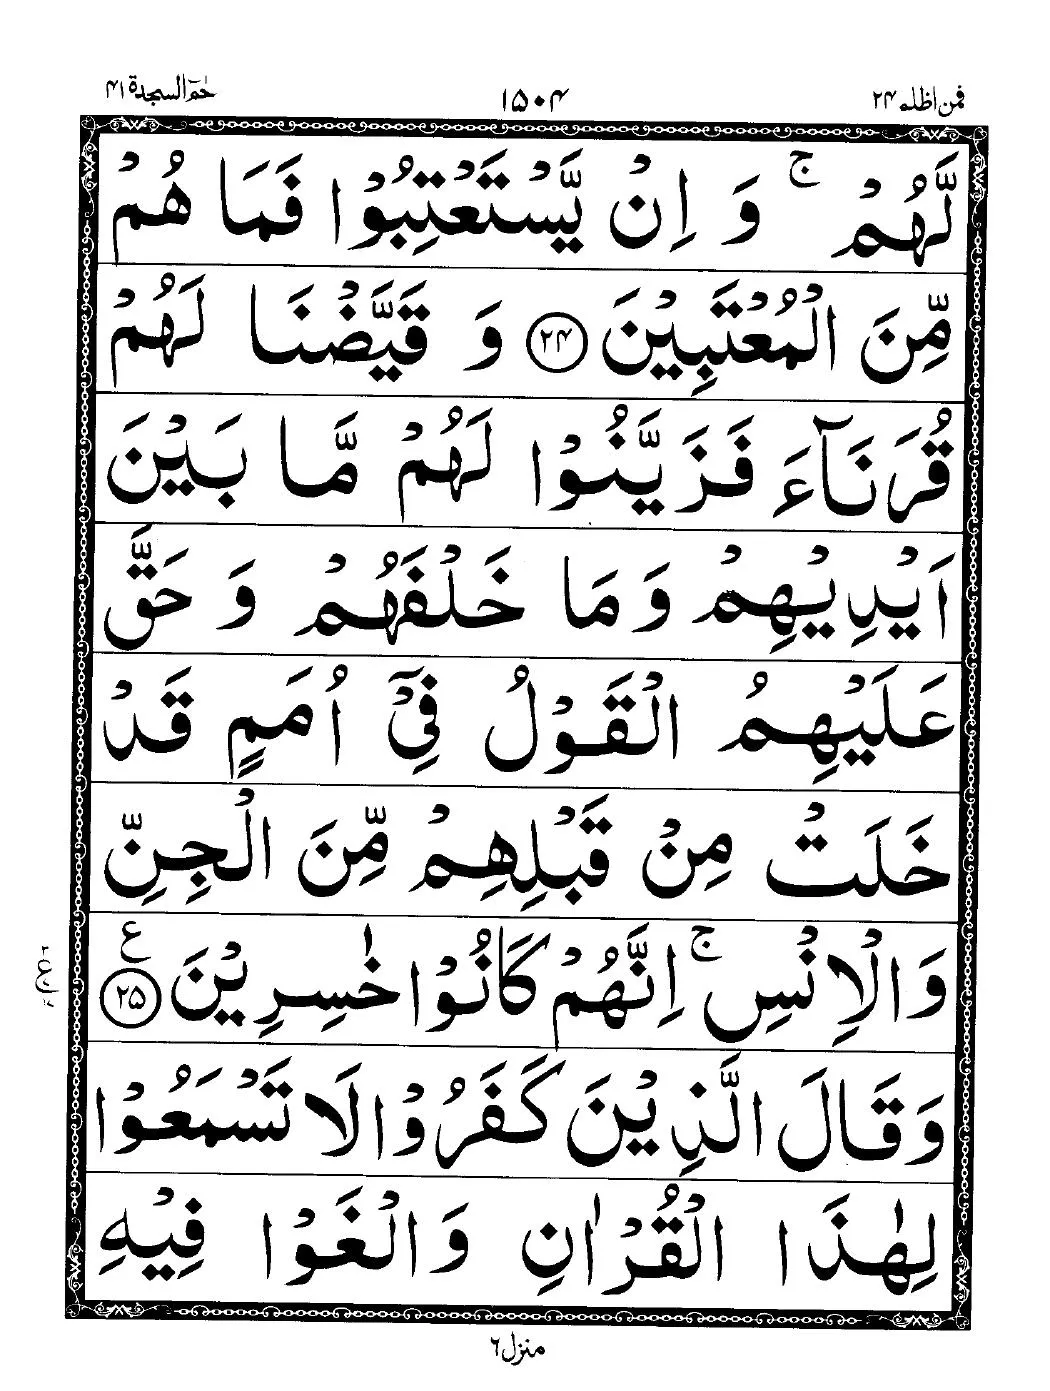 فمن اظلم ۲۴
۱۵۰۴
حٰمٓ السجدة ۴۱
لَّهُمْ ۚ وَ اِنْ يَّسْتَعْتِبُوْا فَمَا هُمْ
مِّنَ الْمُعْتَبِيْنَ ۲۴ وَ قَيَّضْنَا لَهُمْ
قُرَنَآءَ فَزَيَّنُوْا لَهُمْ مَّا بَيْنَ
اَيْدِيْهِمْ وَ مَا خَلْفَهُمْ وَ حَقَّ
عَلَيْهِمُ الْقَوْلُ فِيْٓ اُمَمٍ قَدْ
خَلَتْ مِنْ قَبْلِهِمْ مِّنَ الْجِنِّ
وَالْاِنْسِ ۚ اِنَّهُمْ كَانُوْا خٰسِرِيْنَ ۲۵ ع
وَ قَالَ الَّذِيْنَ كَفَرُوْا لَا تَسْمَعُوْا
لِهٰذَا الْقُرْاٰنِ وَ الْغَوْا فِيْهِ
منزل ۶